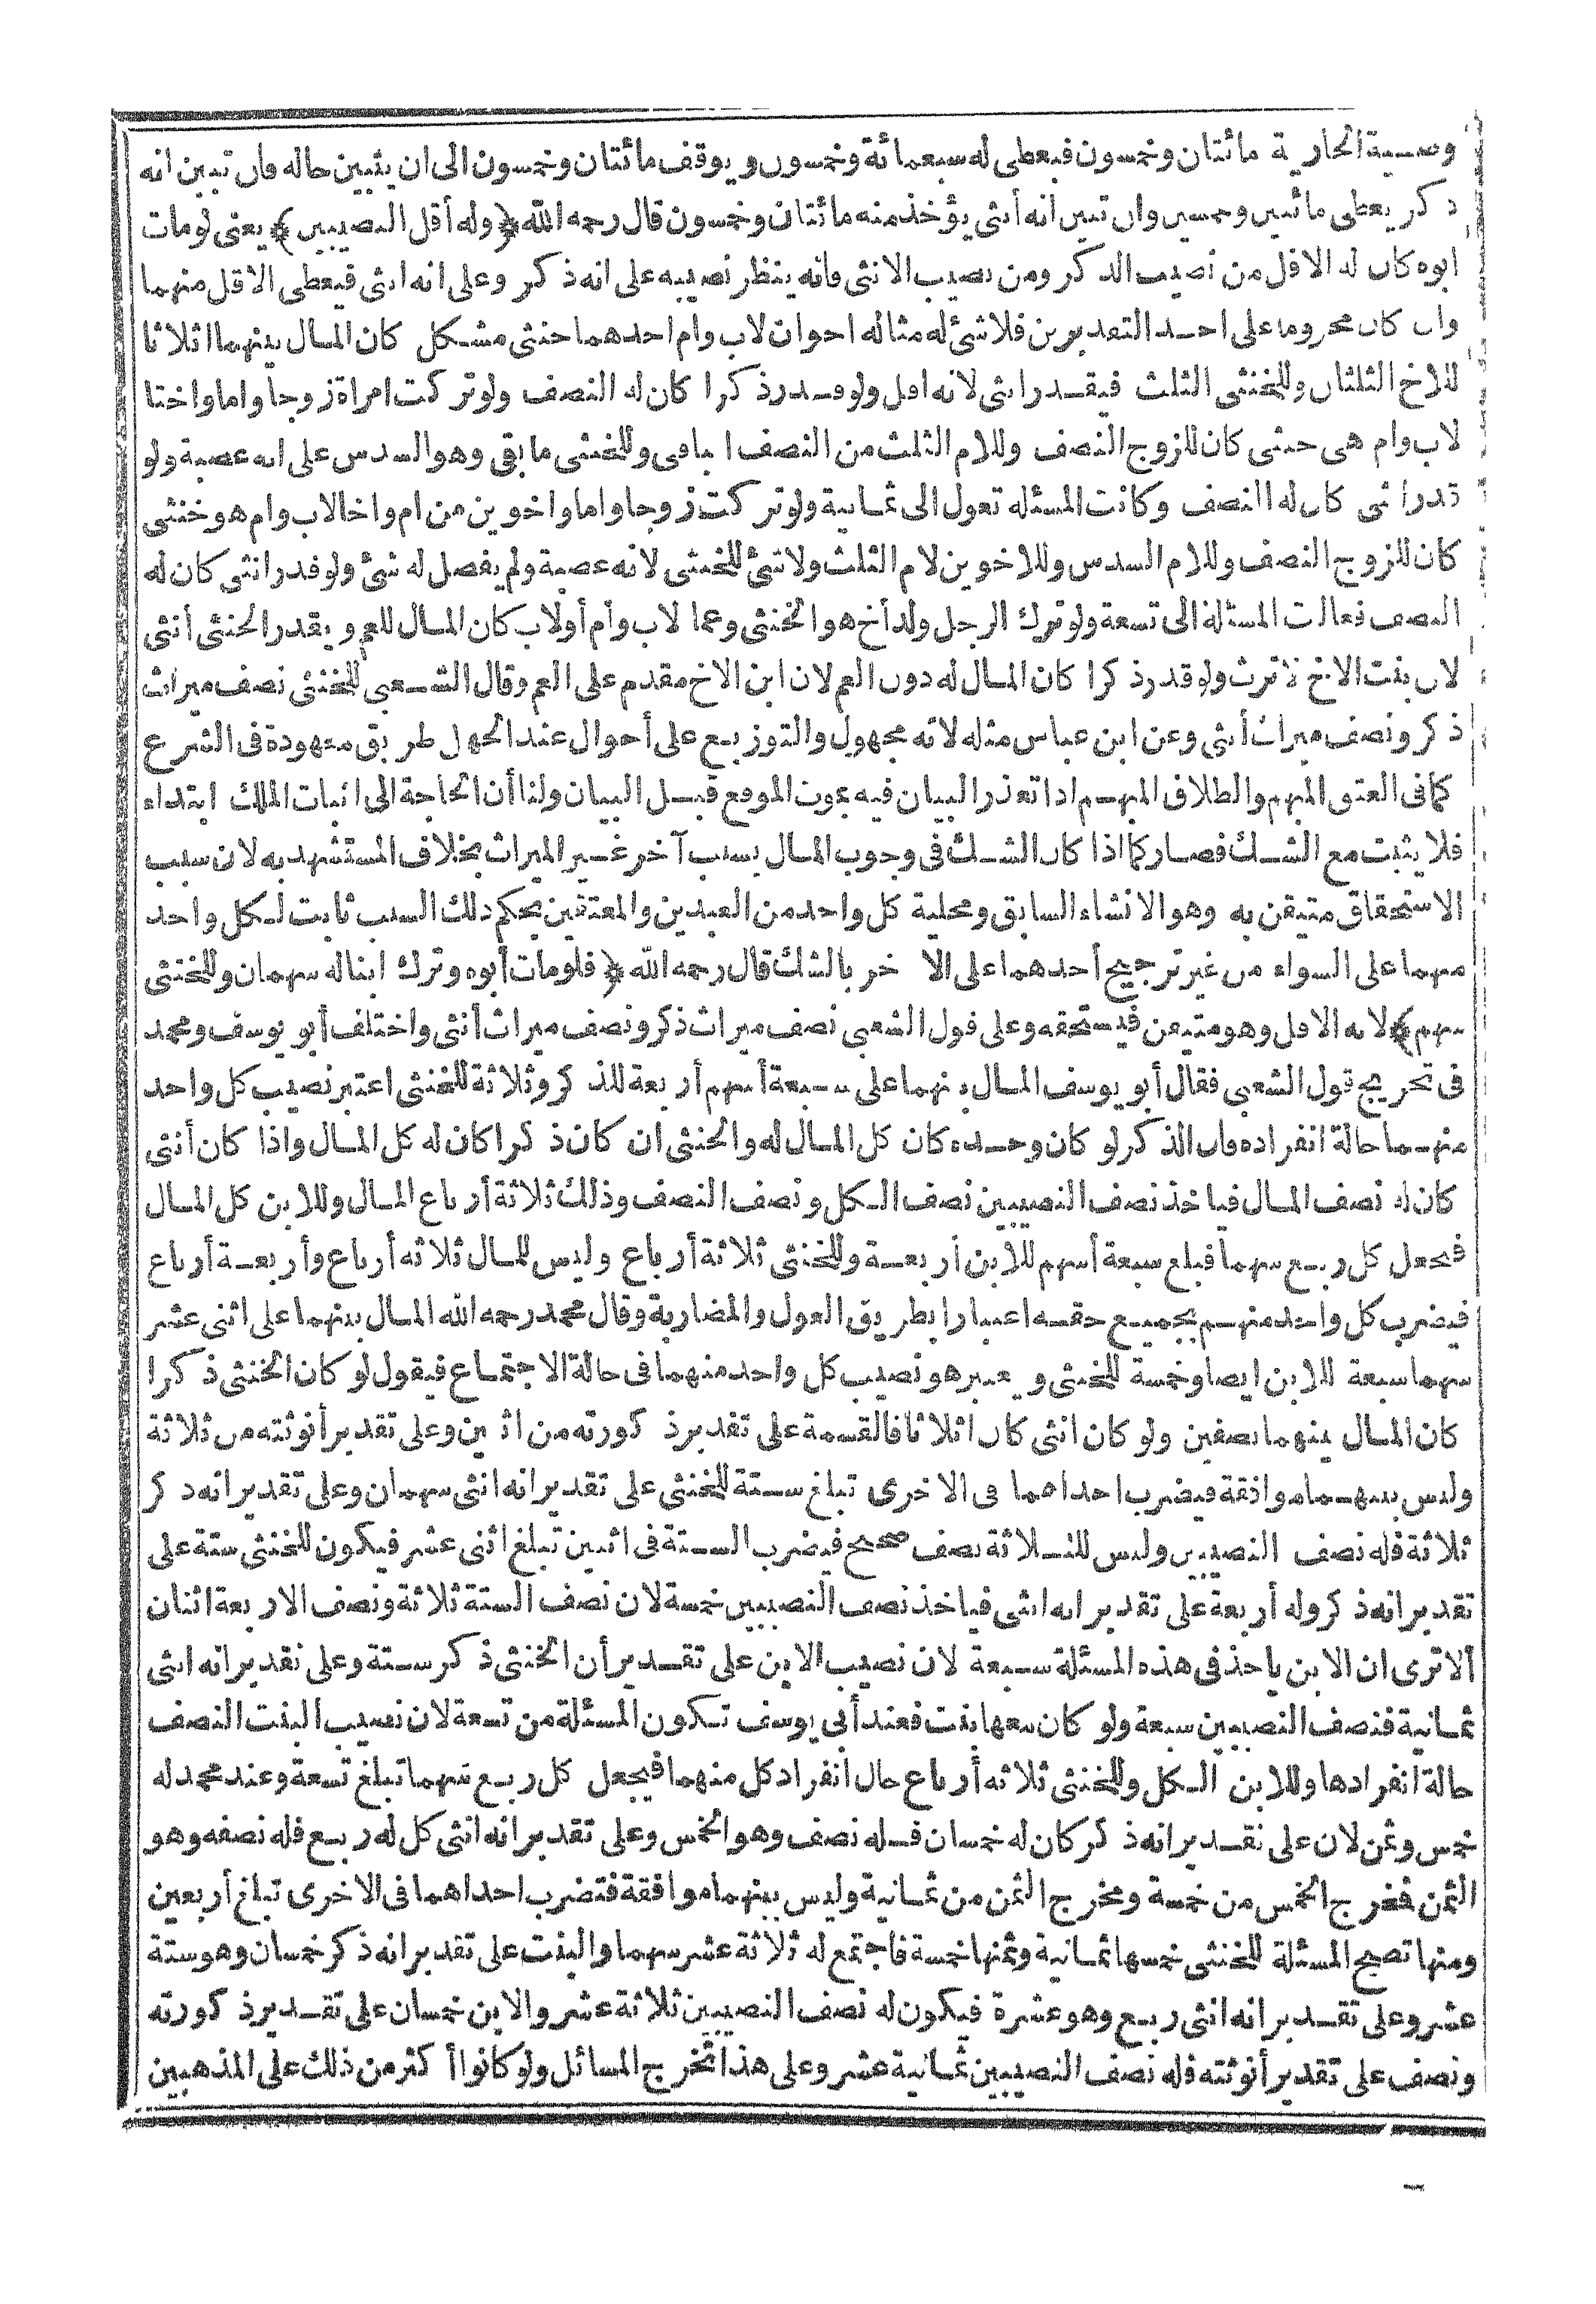 وصية الجارية مائتان وخمسون فيعطى له سبعمائة وخمسون ويوقف مائتان وخمسون الى ان يتبين حاله فان تبين انه
ذكر يعطى مائتين وخمسين وان تبين انه أنثى يؤخذ منه مائتان وخمسون قال رحمه الله ﴿وله أقل النصيبين﴾ يعنى لومات
ابوه كان له الاقل من نصيب الذكر ومن نصيب الانثى فانه ينظر نصيبه على انه ذكر وعلى انه انثى فيعطى الاقل منهما
وان كان محروما على احد التقديرين فلا شئ له مثاله اخوان لاب وام احدهما خنثى مشكل كان المال بينهما اثلاثا
للاخ الثلثان وللخنثى الثلث فيقدر انثى لانه اقل ولو قدر ذكرا كان له النصف ولو تركت امراة زوجا واما واختا
لاب وام هى خنثى كان للزوج النصف وللام الثلث من النصف الباقى وللخنثى ما بقى وهو السدس على انه عصبة ولو
قدر انثى كان له النصف وكانت المسئله تعول الى ثمانية ولو تركت زوجا واما واخوين من ام واخا لاب وام هو خنثى
كان للزوج النصف وللام السدس وللاخوين لام الثلث ولا شئ للخنثى لانه عصبة ولم يفضل له شئ ولو قدر انثى كان له
النصف فعالت المسئلة الى تسعة ولو ترك الرجل ولد أخ هو الخنثى وعما لاب وأم أولاب كان المال للعم ويقدر الخنثى أنثى
لان بنت الاخ لا ترث ولو قدر ذكرا كان المال له دون العم لان ابن الاخ مقدم على العم وقال الشعبى للخنثى نصف ميراث
ذكر ونصف ميراث أنثى وعن ابن عباس مثله لانه مجهول والتوزيع على أحوال عند الجهل طريق معهودة فى الشرع
كما فى العتق المبهم والطلاق المبهم اذا تعذر البيان فيه بموت الموقع قبل البيان ولنا أن الحاجة الى اثبات الملك ابتداء
فلا يثبت مع الشك فصار كما اذا كان الشك فى وجوب المال بسبب آخر غير الميراث بخلاف المستشهد به لان سبب
الاستحقاق متيقن به وهو الانشاء السابق ومحلية كل واحد من العبدين والمعتقين بحكم ذلك السبب ثابت لكل واحد
منهما على السواء من غير ترجيح أحدهما على الاخر بالشك قال رحمه الله ﴿فلومات أبوه وترك ابنا له سهمان وللخنثى
سهم﴾ لانه الاقل وهو متيقن فيستحقه وعلى قول الشعبى نصف ميراث ذكر ونصف ميراث أنثى واختلف أبو يوسف ومحمد
فى تخريج قول الشعبى فقال أبو يوسف المال بينهما على سبعة أسهم أربعة للذكر وثلاثة للخنثى اعتبر نصيب كل واحد
منهما حالة انفراده فان الذكر لو كان وحده كان كل المال له والخنثى ان كان ذكرا كان له كل المال واذا كان أنثى
كان له نصف المال فياخذ نصف النصيبين نصف الكل ونصف النصف وذلك ثلاثة أرباع المال وللابن كل المال
فيجعل كل ربع سهما فبلغ سبعة أسهم للابن أربعة وللخنثى ثلاثة أرباع وليس للمال ثلاثه أرباع وأربعة أرباع
فيضرب كل واحد منهم بجميع حقه اعتبارا بطريق العول والمضاربة وقال محمد رحمه الله المال بينهما على اثنى عشر
سهما سبعة للابن ايضا وخمسة للخنثى ويعتبر هو نصيب كل واحد منهما فى حالة الاجتماع فيقول لو كان الخنثى ذكرا
كان المال بينهما نصفين ولو كان انثى كان اثلاثا فالقسمة على تقدير ذكورته من اثنين وعلى تقدير أنوثته من ثلاثة
وليس بينهما موافقة فيضرب احداهما فى الاخرى تبلغ ستة للخنثى على تقدير انه انثى سهمان وعلى تقدير انه ذكر
ثلاثة فله نصف النصيبين وليس للثلاثة نصف صحيح فيضرب الستة فى اثنين تبلغ اثنى عشر فيكون للخنثى ستة على
تقدير انه ذكر وله أربعة على تقدير انه انثى فياخذ نصف النصيبين خمسة لان نصف الستة ثلاثة ونصف الاربعة اثنان
ألا ترى ان الابن ياخذ فى هذه المسئلة سبعة لان نصيب الابن على تقدير أن الخنثى ذكر ستة وعلى تقدير انه انثى
ثمانية فنصف النصيبين سبعة ولو كان معها بنت فعند أبى يوسف تكون المسئلة من تسعة لان نصيب البنت النصف
حالة انفرادها وللابن الكل وللخنثى ثلاثه أرباع حال انفراد كل منهما فيجعل كل ربع سهما تبلغ تسعة وعند محمد له
خمس وثمن لان على تقدير انه ذكر كان له خمسان فله نصف وهو الخمس وعلى تقدير انه انثى كل له ربع فله نصفه وهو
الثمن فمخرج الخمس من خمسة ومخرج الثمن من ثمانية وليس بينهما موافقة فتضرب احداهما فى الاخرى تبلغ أربعين
ومنها تصح المسئلة للخنثى خمسها ثمانية وثمنها خمسة فاجتمع له ثلاثة عشر سهما والبنت على تقدير انه ذكر خمسان وهو ستة
عشر وعلى تقدير انه انثى ربع وهو عشرة فيكون له نصف النصيبين ثلاثة عشر والابن خمسان على تقدير ذكورته
ونصف على تقدير أنوثته فله نصف النصيبين ثمانية عشر وعلى هذا تخرج المسائل ولو كانوا أكثر من ذلك على المذهبين